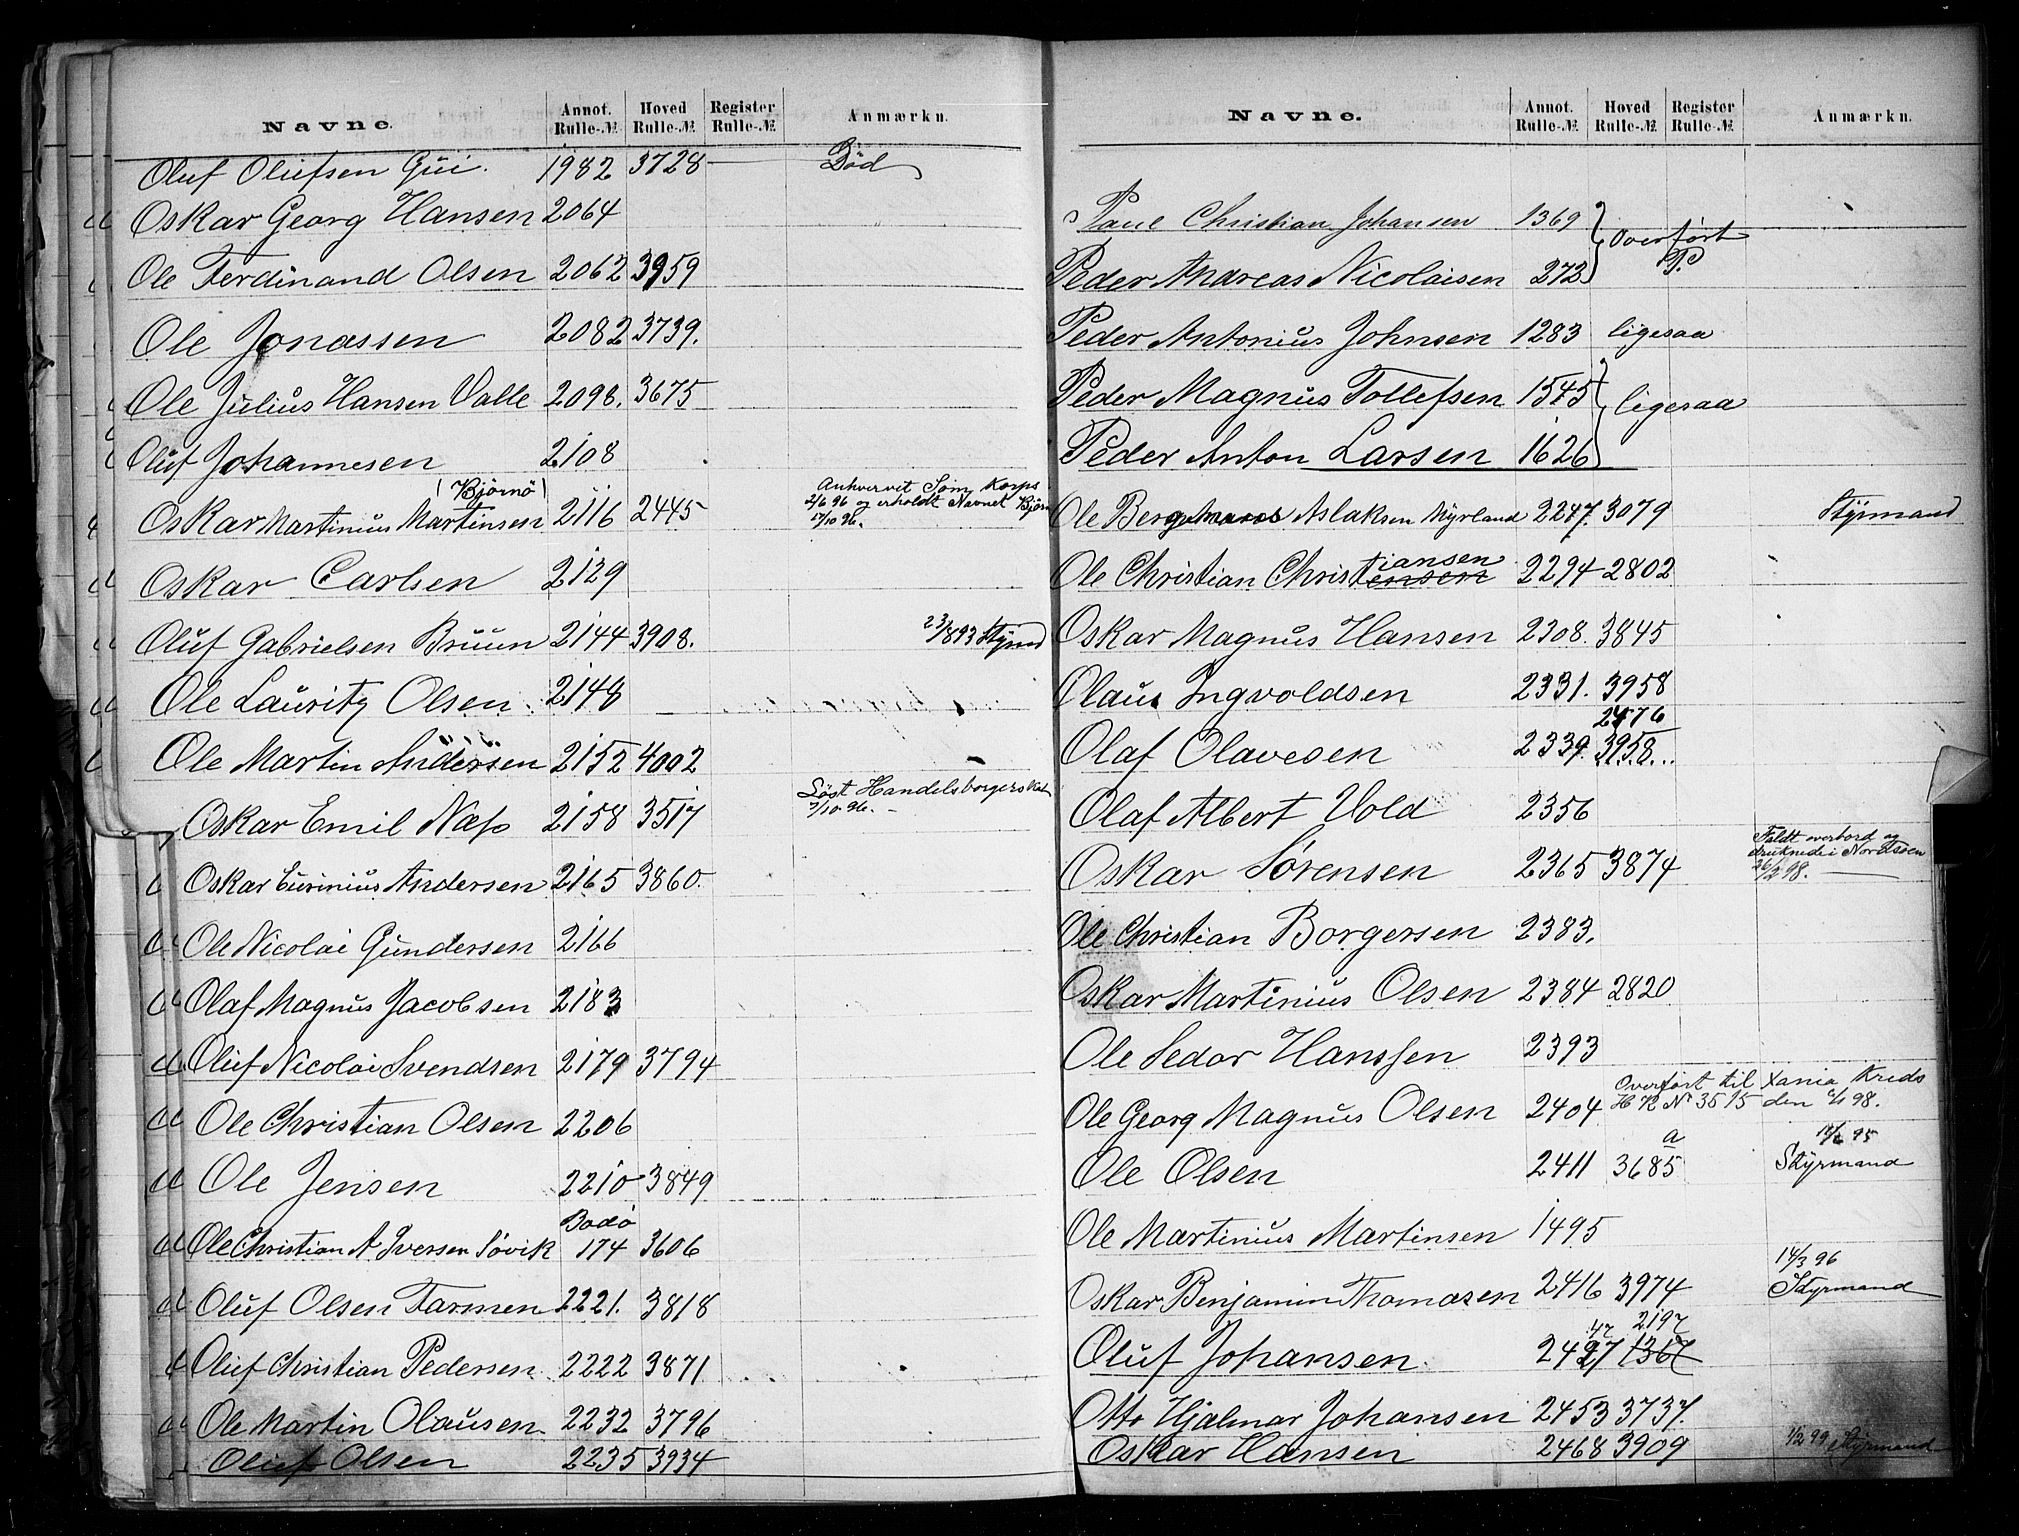 Navne. Annot. Rulle-№ Hoved Rulle-№ Register Rulle-№ Anmærkn.
Oluf Olufsen Gui. 1982 3728 Död
Oskar Georg Hansen 2064
Ole Ferdinand Olsen 2062 3959
Ole Jonassen 2082 3739.
Ole Julius Hansen Valle 2098. 3675
Oluf Johannesen 2108
Oskar Martinius Martinsen (Bjørnö) 2116 2445 Anhvervet Søm Korps
2/6 96 og erholdt Navnet Bjørn
17/10 96.
Oskar Carlsen 2129
Oluf Gabrielsen Bruun 2144 3908. 23/893 Stÿrmd
Ole Lauritz Olsen 2148
Ole Martin Andersen 2152 4002
Oskar Emil Næss 2158 3517 Löst Handelsborgerskab
7/10 96.
Oskar Eurinius Andersen 2165 3860.
Ole Nicolai Gundersen 2166
Olaf Magnus Jacobsen 2183
Oluf Nicolai Svendsen 2179 3794
Ole Christian Olsen 2206
Ole Jensen 2210 3849
Ole Christian A Iversen Sövik Bodö 174 3606
Oluf Olsen Farmen 2221. 3818
Oluf Christian Pedersen 2222 3871
Ole Martin Olausen 2232 3796
Oluf Olsen 2235 3934
Navne. Annot. Rulle-№ Hoved Rulle-№ Register Rulle-№ Anmærkn.
Paul Christian Johansen 1369 Overført
Peder Andreas Nicolaisen 272 P.
Peder Antonius Johnsen 1283 ligesaa
Peder Magnus Tollefsen 1545 ligesaa
Peder Anton Larsen 1626
Ole Aslaksen Myrland 2247. 3079 Stÿrmand
Ole Christian Christensen iansen 2294 2802
Oskar Magnus Hansen 2308. 3845
Olaus Ingvoldsen 2331. 3958
2476
Olaf Olavesen 2339. 3958...
Olaf Albert Vold 2356
Oskar Sörensen 2365 3874 Faldt overbord og
druknede i Nordsöen
26/2 98.
Ole Christian Borgersen 2383.
Oskar Martinius Olsen 2384 2820
Ole Sedor Hanssen 2393
Overført til Xania Kreds
Ole Georg Magnus Olsen 2404 H R № 3515 den 98.
a 95
Ole Olsen 2411 3685 Stÿrmand
Ole Martinius Martinsen 1495
14/3 96
Oskar Benjamin Thomasen 2416 3974 Styrmand
47 2197
Oluf Johansen. 2427 1367
Otto Hjalmar Johansen 2453 3737.
Oskar Hansen 2468 3909 1/2 99 Styrmand